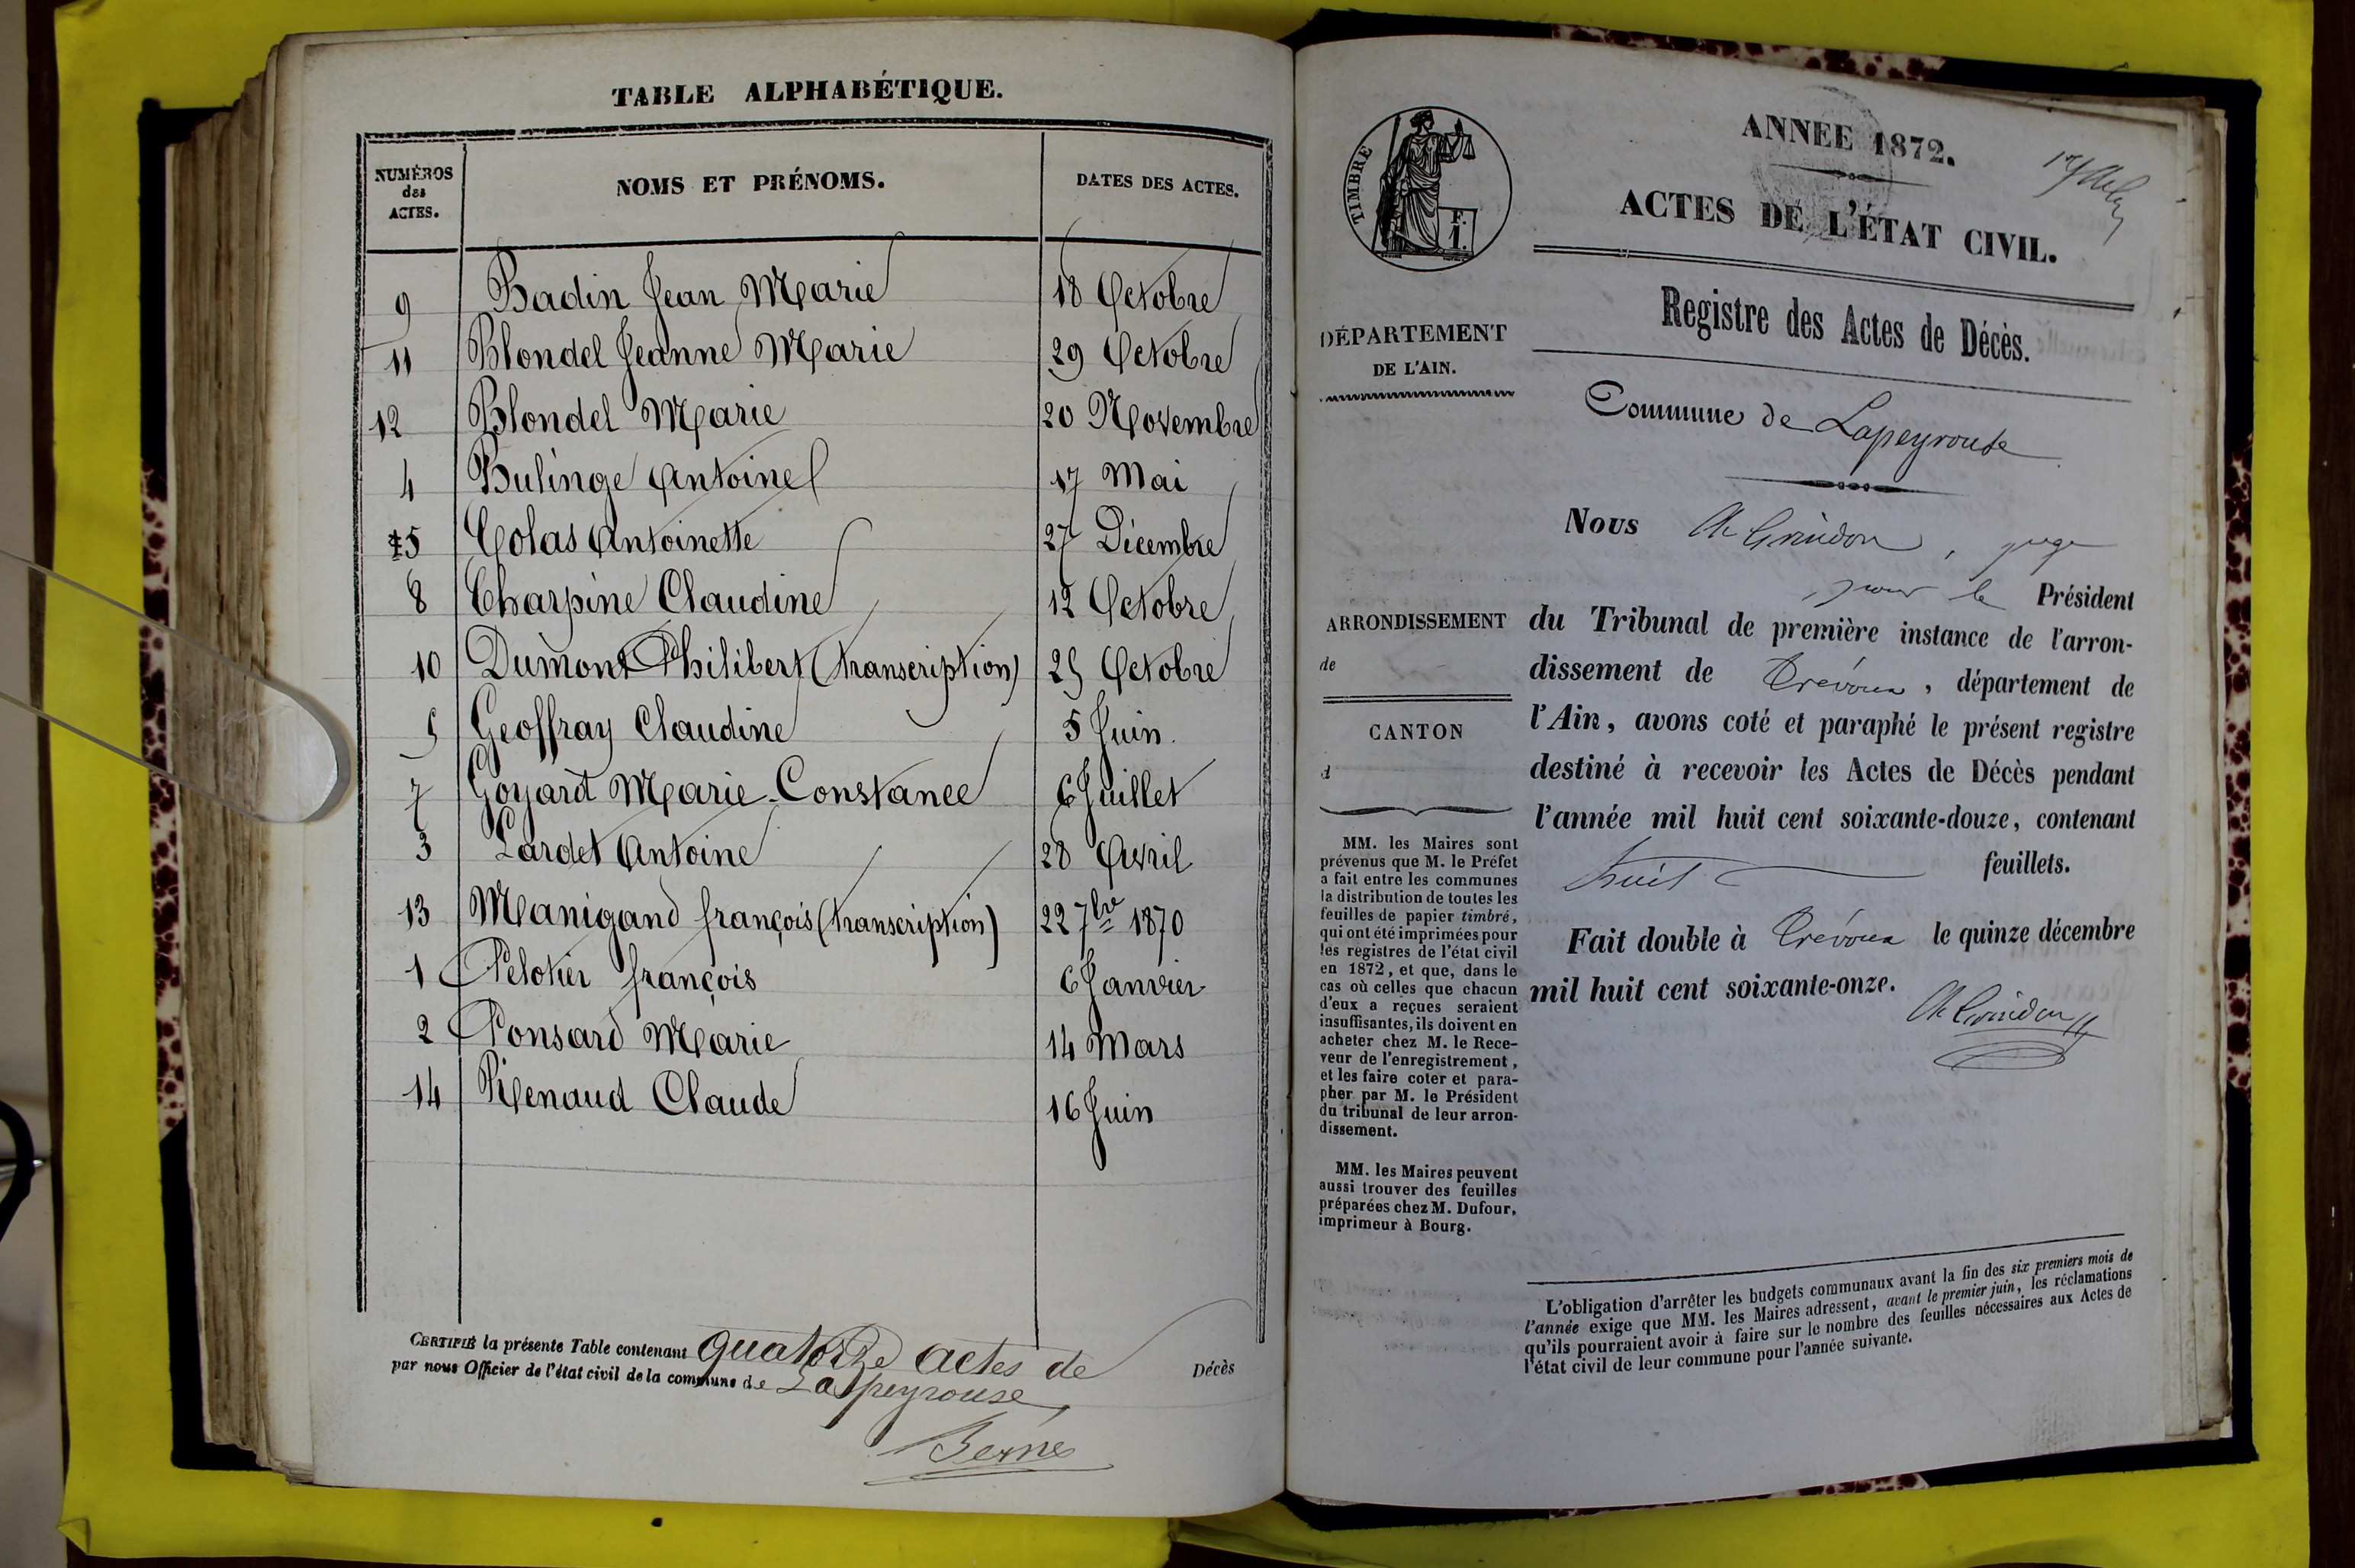 TABLE ALPHABÉTIQUE.
NUMÉROS des ACTES. NOMS ET PRÉNOMS. DATES DES ACTES.
9 Badin Jean Marie 18 Octobre
11 Blondel Jeanne Marie 29 Octobre
12 Blondel Marie 20 Novembre
4 Bulinge Antoine 17 Mai
5 Colas Antoinette 27 Décembre
8 Charpine Claudine 12 Octobre
10 Dumont Philibert (transcription) 25 Octobre
5 Geoffray Claudine 5 Juin.
7 Goyard Marie-Constance 6 Juillet
3 Lardet Antoine 28 Avril
13 Manigand françois (transcription) 22 7bre 1870
1 Pelotier françois 6 Janvier
2 Ponsard Marie 14 Mars
14 Renaud Claude 16 Juin
CERTIFIÉ la présente Table contenant quatorze actes de Décès
par nous Officier de l'état civil de la commune de Lapeyrouse
Berne
TIMBRE
F. I.
ANNEE 1872.
ACTES DE L'ÉTAT CIVIL.
Registre des Actes de Décès.
DÉPARTEMENT
DE L'AIN.
Commune de Lapeyrouse
Nous juge
pour le Président
ARRONDISSEMENT
de
CANTON
d
du Tribunal de première instance de l'arron-
dissement de Trévoux, département de
l'Ain, avons coté et paraphé le présent registre
destiné à recevoir les Actes de Décès pendant
l'année mil huit cent soixante-douze, contenant
huit feuillets.
Fait double à Trévoux le quinze décembre
mil huit cent soixante-onze.
MM. les Maires sont
prévenus que M. le Préfet
a fait entre les communes
la distribution de toutes les
feuilles de papier timbré,
qui ont été imprimées pour
les registres de l'état civil
en 1872, et que, dans le
cas où celles que chacun
d'eux a reçues seraient
insuffisantes, ils doivent en
acheter chez M. le Rece-
veur de l'enregistrement,
et les faire coter et para-
pher par M. le Président
du tribunal de leur arron-
dissement.
MM. les Maires peuvent
aussi trouver des feuilles
préparées chez M. Dufour,
imprimeur à Bourg.
L'obligation d'arrêter les budgets communaux avant la fin des six premiers mois de
l'année exige que MM. les Maires adressent, avant le premier juin, les réclamations
qu'ils pourraient avoir à faire sur le nombre des feuilles nécessaires aux Actes de
l'état civil de leur commune pour l'année suivante.